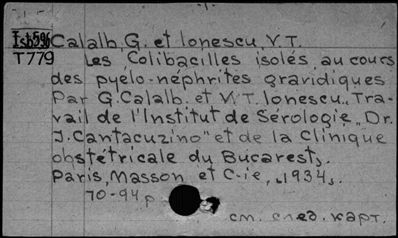 Calalb, G. et Ionescu, V.T.
T779
Les Colibacilles isolés au cours
des pyélo-néphrites gravidiques
Par G. Calalb. et V.T. Ionescu. „Tra-
vail de l'Institut de Sérologie „Dr.
J. Cantacuzino" et de la Clinique
obstétricale du Bucarest„.
Paris, Masson et C-ie, „1934„.
70-94 p
см. след. карт.